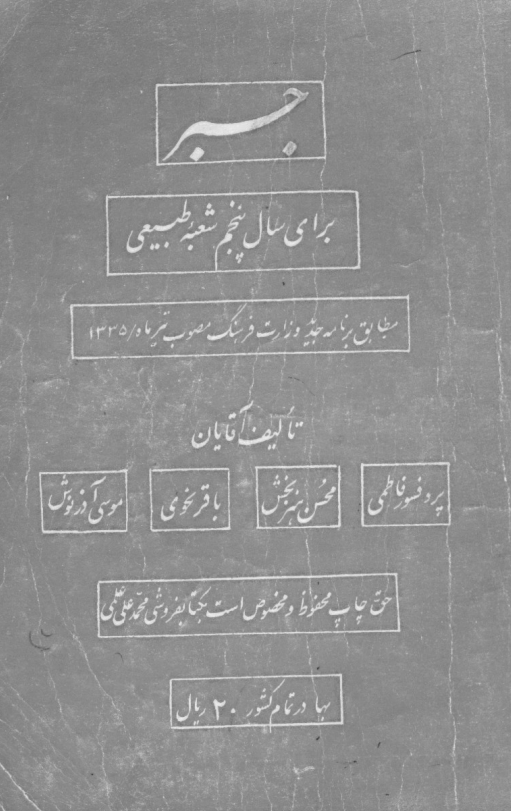 جبر
برای سال پنجم شعبهٔ طبیعی
مطابق برنامه جدید وزارت فرهنگ مصوب تیر ماه/۱۳۳۵
تألیف آقایان
پروفسور فاطمی محسن هنربخش باقر نحوی موسی آذرنوش
حق چاپ محفوظ و مخصوص است بکتابفروشی محمد علی علمی
بها در تمام کشور ۲۰ ریال